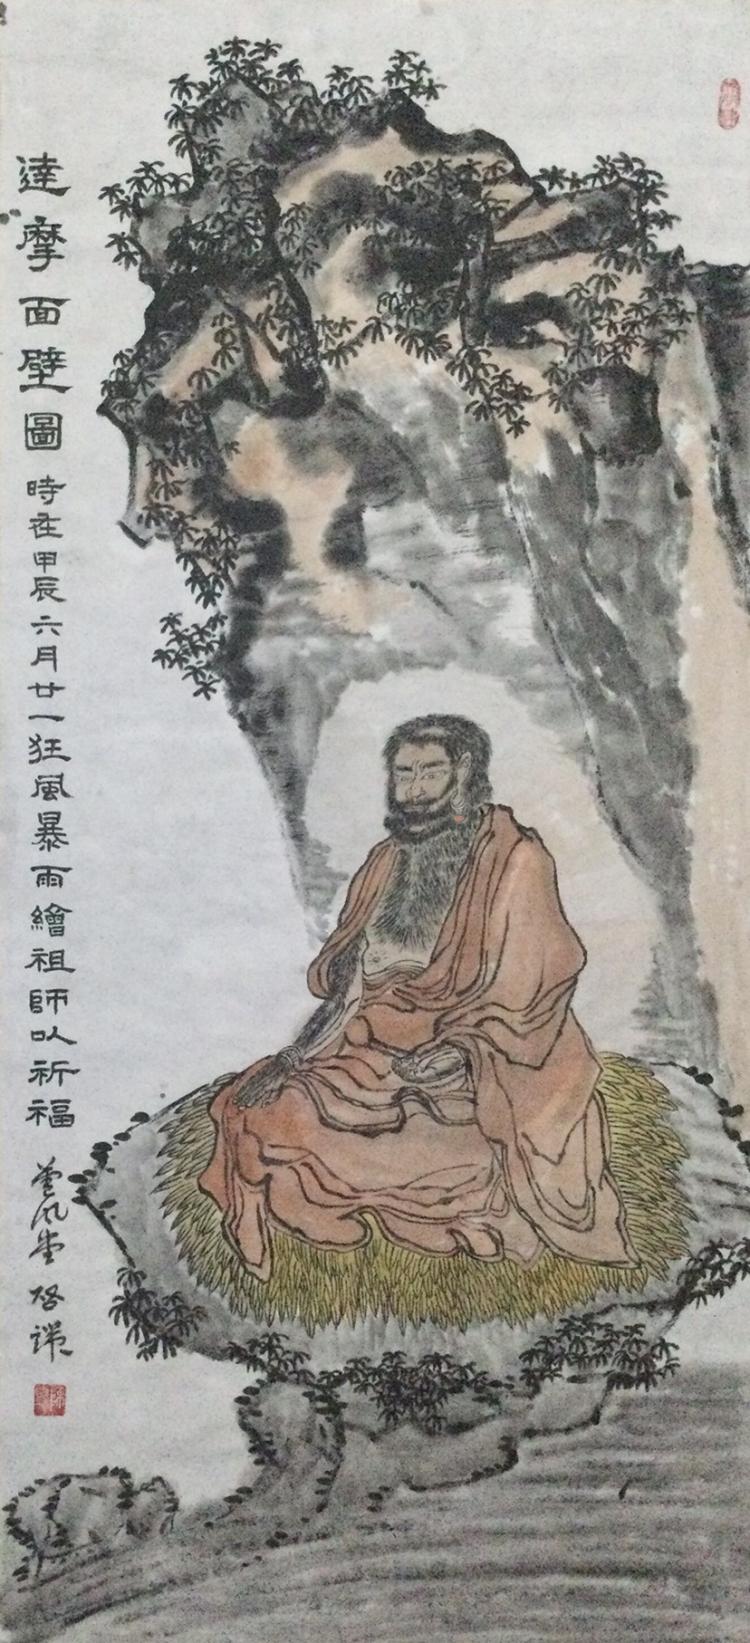 達摩面壁圖 時在甲辰六月廿一狂風暴雨繪祖師以祈福